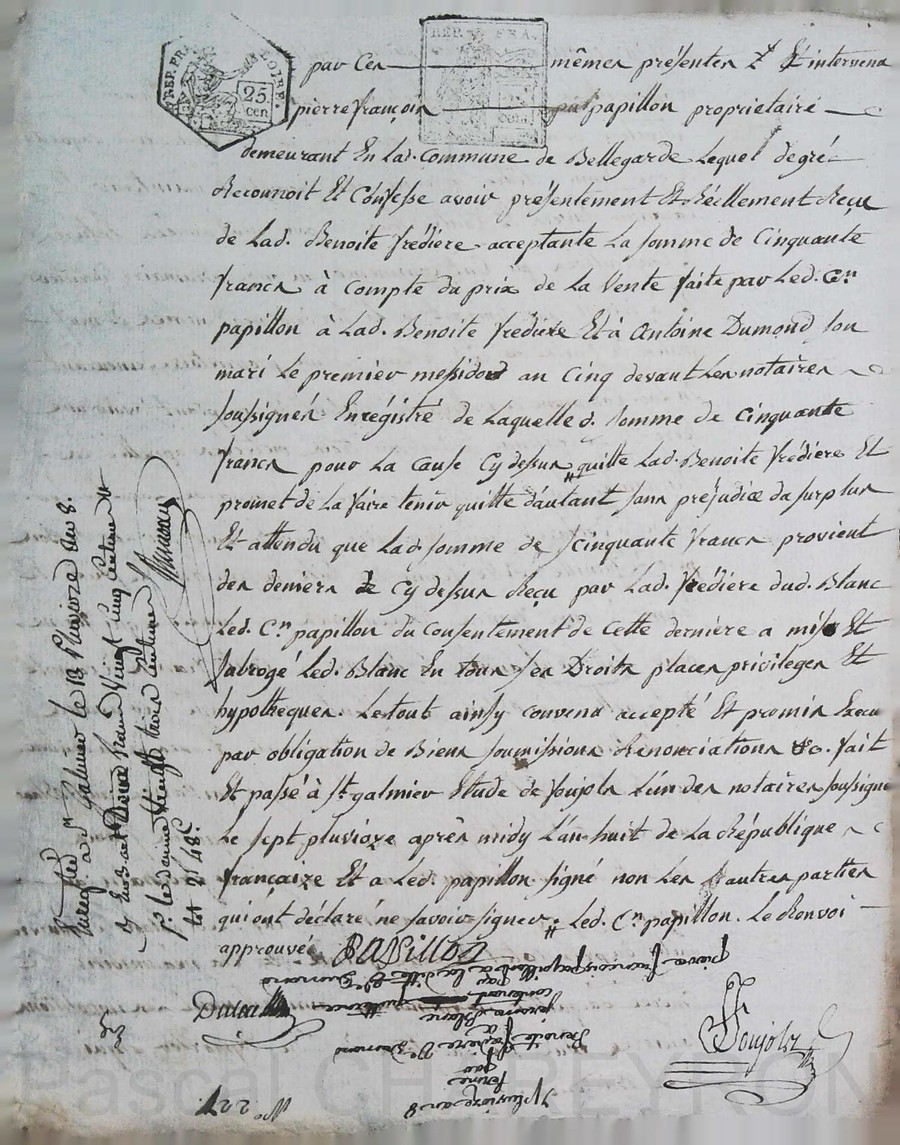 REP. FRA.
25
cen
REP. FRA.
par Ces mêmes présentes Et intervenu
pierre françois papillon proprietaire
demeurant En lad. Commune de Bellegarde Lequel de gré
Reconnoit Et Confesse avoir présentement Et Réellement Reçu
de Lad. Benoite frédiere acceptante La somme de Cinquante
francs à Compte du prix de La Vente faite par Led. Cen
papillon à Lad. Benoite fredière Et à Antoine Dumond son
mari Le premier messidor an Cinq devant Les notaires
soussignés Enrégistré de Laquelle d. somme de cinquante
francs pour La Cause Cy dessus quitte Lad. Benoite frédiere Et
promet de La faire tenir quitte d'autant sans préjudice du surplus
Et attendu que Lad. somme de cinquante francs provient
des deniers de Cy dessus Reçu par Lad. frédiere dud. Blanc
Led. Cn papillon du Consentement de Cette derniére a mis Et
subrogé Led. Blanc En tous ses Droits places privileges Et
hypothèques. Le tout ainsy convenu accepté Et promis Execu
par obligation de Biens soumissions Renonciations &c. fait
Et passé à st. galmier Etude de soujols L'un des notaires soussigné
Le sept pluvioze après midy L'an huit de La République
françaize Et a Led. papillon signé non Les autres parties
qui ont déclaré ne savoir signer Led. Cn papillon. Le Renvoi
approuvé PAPILLON
Soujols
Enreg. à St Galmier le 13 Pluvioze an 8.
2f 48c
7 pluvioze an 8
par
Benoite fredière Ve Dumond
à
Blanc
contenant quittance
par
pierre françois papillon à ladite Ve Dumond
No. 221
Pascal CHAPEYRON